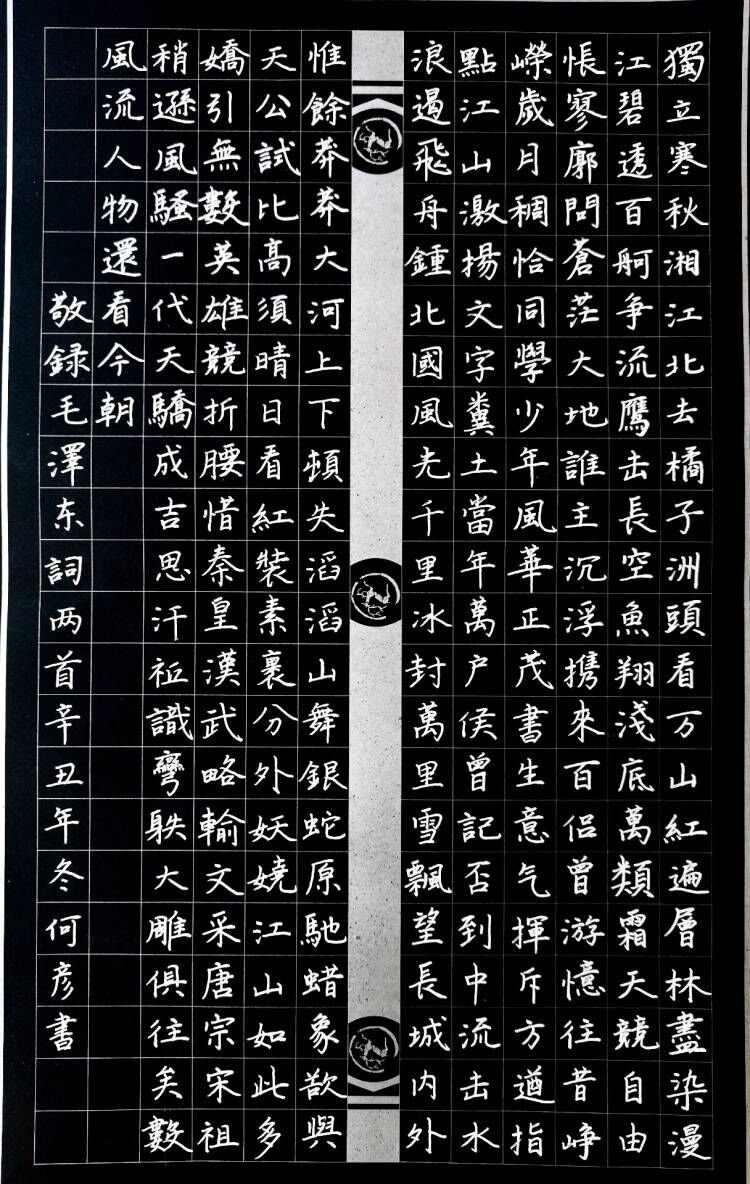 獨立寒秋湘江北去橘子洲頭看万山紅遍層林盡染漫
江碧透百舸争流鷹击長空魚翔淺底萬類霜天競自由
悵寥廓問蒼茫大地誰主沉浮携來百侣曾游憶往昔峥
嶸歲月稠恰同學少年風華正茂書生意气揮斥方遒指
點江山激揚文字糞土當年萬户侯曾記否到中流击水
浪遏飛舟鍾北國風光千里冰封萬里雪飄望長城内外
惟餘莽莽大河上下頓失滔滔山舞銀蛇原馳蜡象欲與
天公試比高須晴日看紅裝素裹分外妖嬈江山如此多
嬌引無數英雄競折腰惜秦皇漢武略輸文采唐宗宋祖
稍遜風騷一代天驕成吉思汗祗識彎大雕俱往矣數
風流人物還看今朝
敬録毛澤东詞两首辛丑年冬何彦書